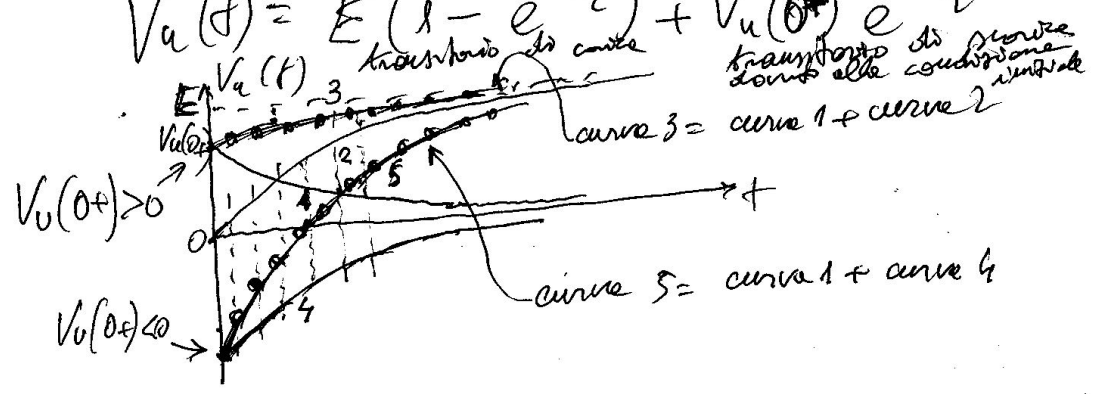 Vu(t) = E (1 - e ) + Vu(0+) e
transitorio di carica
transitorio di scarica
dovuto alla condizione
iniziale
Vu(t)
E
3
Vu(0+)
curva 3 = curva 1 + curva 2
2
1
5
Vu(0+)>0
t
0
curva 5 = curva 1 + curva 4
4
Vu(0+)<0